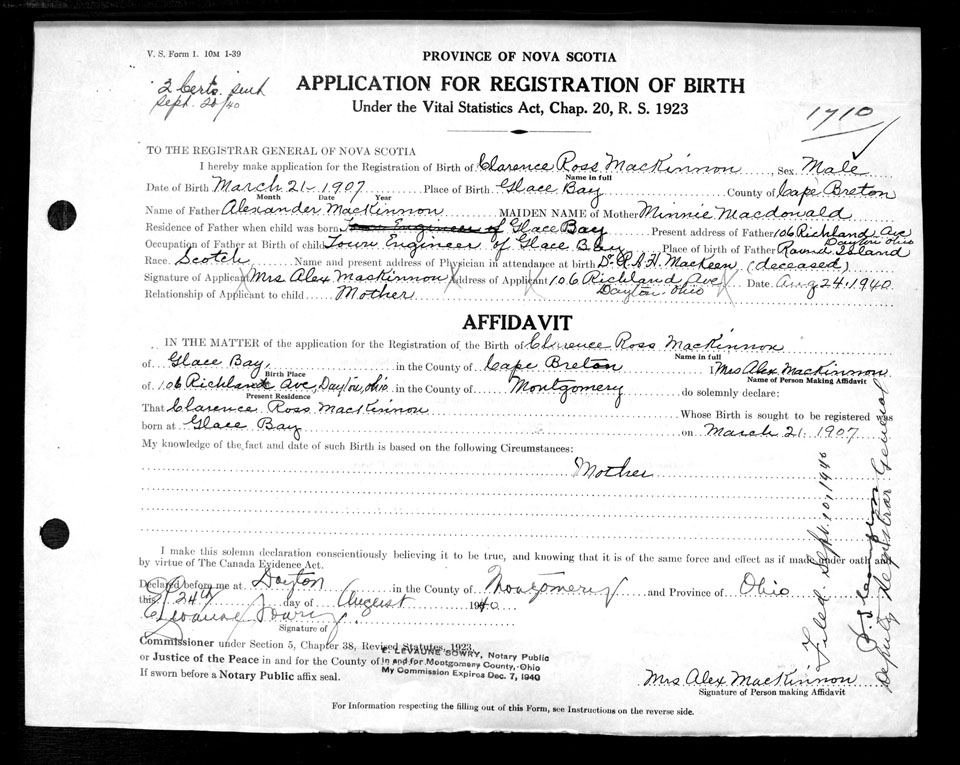 V. S. Form 1. 10M 1-39
PROVINCE OF NOVA SCOTIA
2 Certs. sent
Sept. 20/40
APPLICATION FOR REGISTRATION OF BIRTH
Under the Vital Statistics Act, Chap. 20, R. S. 1923
1710
TO THE REGISTRAR GENERAL OF NOVA SCOTIA
I hereby make application for the Registration of Birth of Clarence Ross MacKinnon, Sex Male
Name in full
Date of Birth March 21-1907 Place of Birth Glace Bay County of Cape Breton
Month Date Year
Name of Father Alexander MacKinnon MAIDEN NAME of Mother Minnie Macdonald
Residence of Father when child was born Town Engineer of Glace Bay Present address of Father 106 Richland Ave
Dayton Ohio
Occupation of Father at Birth of child Town Engineer of Glace Bay Place of birth of Father Round Island
Race. Scotch Name and present address of Physician in attendance at birth Dr. R.A.H. MacKeen (deceased)
Signature of Applicant Mrs Alex MacKinnon Address of Applicant 106 Richland Ave Date Aug 24-1940
Dayton. Ohio
Relationship of Applicant to child Mother
AFFIDAVIT
IN THE MATTER of the application for the Registration of the Birth of Clarence Ross MacKinnon
Name in full
of Glace Bay, in the County of Cape Breton I Mrs Alex MacKinnon
Birth Place Name of Person Making Affidavit
of 106 Richland Ave, Dayton, Ohio in the County of Montgomery do solemnly declare:
Present Residence
That Clarence Ross MacKinnon Whose Birth is sought to be registered was
born at Glace Bay on March 21-1907
My knowledge of the fact and date of such Birth is based on the following Circumstances:
Mother
I make this solemn declaration conscientiously believing it to be true, and knowing that it is of the same force and effect as if made under oath and
by virtue of The Canada Evidence Act.
Declared before me at Dayton in the County of Montgomery and Province of Ohio
this 24th day of August 1940
E. Levaune Sowry
Signature of
Commissioner under Section 5, Chapter 38, Revised Statutes, 1923,
or Justice of the Peace in and for the County of
If sworn before a Notary Public affix seal.
E. LEVAUNE SOWRY, Notary Public
In and for Montgomery County, Ohio
My Commission Expires Dec. 7, 1940
Mrs Alex MacKinnon
Signature of Person making Affidavit
Filed Sept. 10, 1940
Deputy Registrar General
For Information respecting the filling out of this Form, see Instructions on the reverse side.